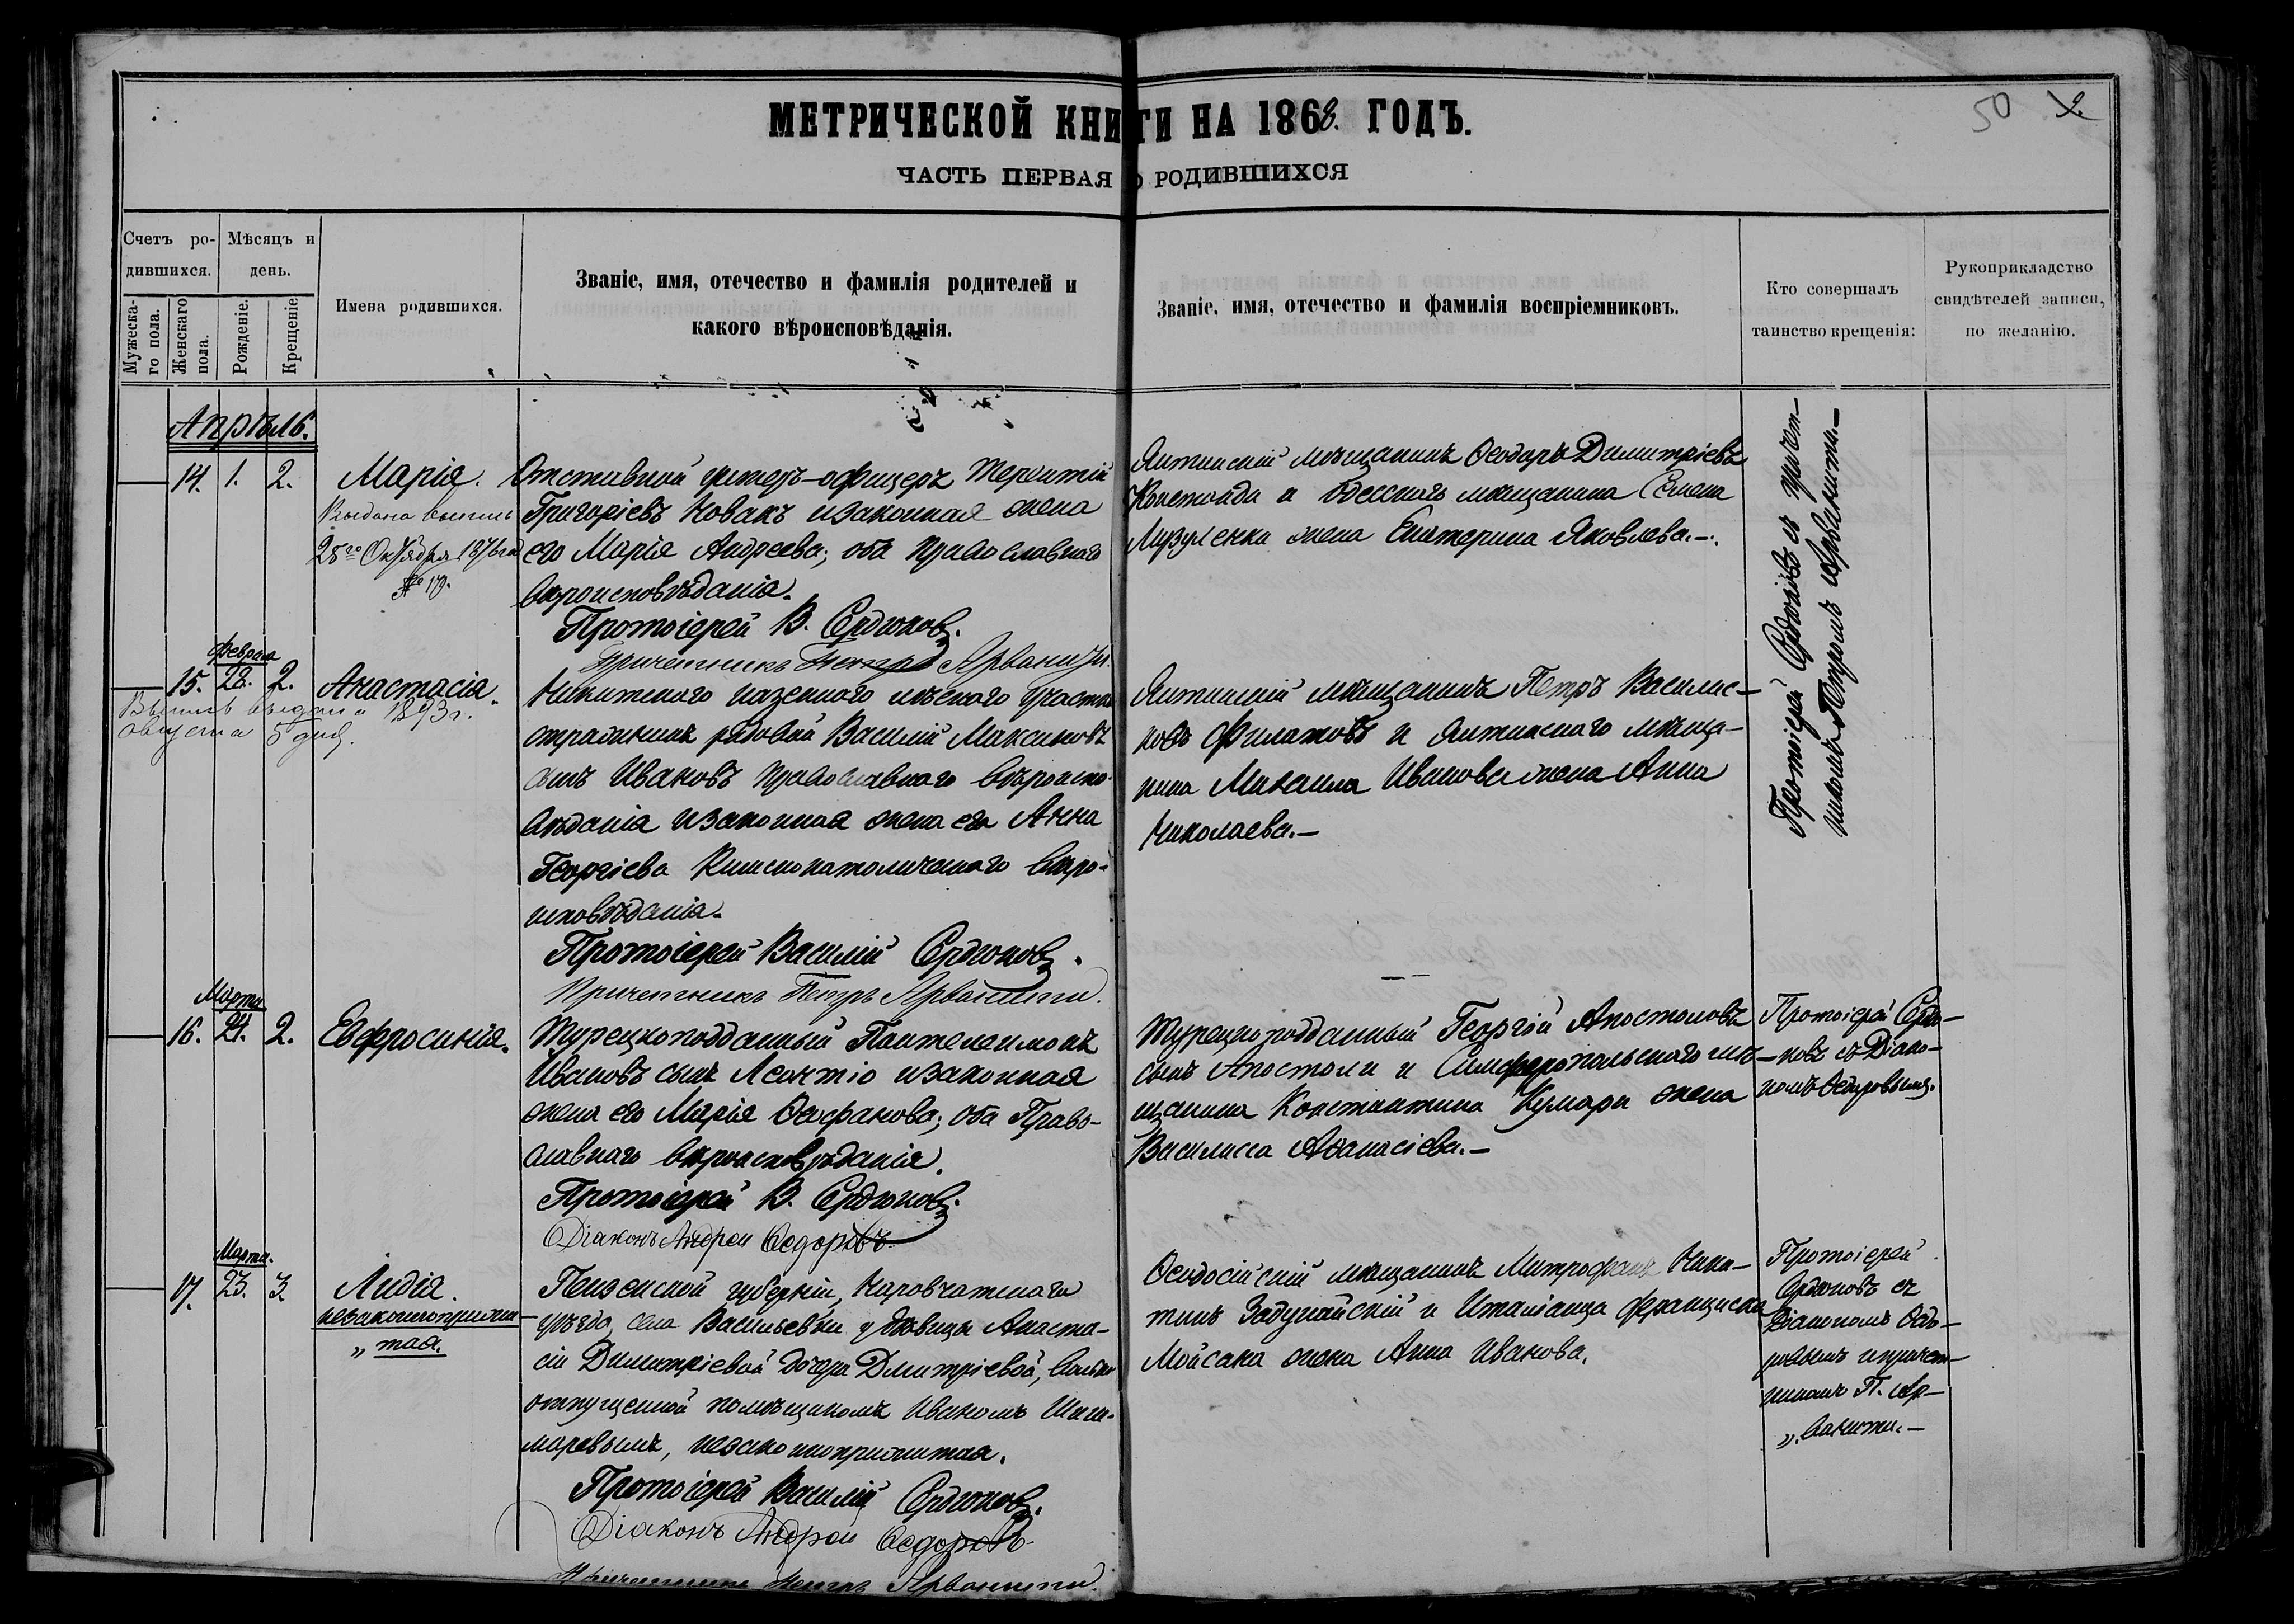 50 2
МЕТРИЧЕСКОЙ КНИГИ НА 1868. ГОДЪ.
ЧАСТЬ ПЕРВАЯ О РОДИВШИХСЯ
Счетъ ро-
дившихся.
Мужеска-
го пола.
Женскаго
пола.
Мѣсяцъ и
день.
Рожденіе.
Крещеніе
Имена родившихся.
Званіе, имя, отечество и фамилія родителей и
какого вѣроисповѣданія.
Званіе, имя, отечество и фамилія воспріемниковъ.
Кто совершалъ
таинство крещенія:
Рукоприкладство
свидѣтелей записи,
по желанію.
Апрѣль.
14. 1. 2.
Марія.
Выдана выпись
28го Октября 1876 год
№ 179.
Отставной унтеръ-офицеръ Терентій
Григоріевъ Новакъ и законная жена
его Марія Андреева; оба православнаго
вѣроисповѣданія.
Протоіерей В. Сердюковъ.
Причетникъ Петръ Арванити.
Ялтинскій мѣщанинъ Ѳеодоръ Димитріевъ
и Одесскаго мѣщанина Семена
жена Екатерина Яковлева.—
Протоіерей Сердюковъ съ причет-
никомъ Петромъ Арванити.—
Февраля
15. 28. 2.
Анастасія.
Выпись выдана 1893 г.
августа 5 дня.
Никитскаго казеннаго лѣснаго участка
стражникъ рядовой Василій Максимовъ
сынъ Ивановъ православнаго вѣроиспо-
вѣданія и законная жена его Анна
Георгіева Римскокатолическаго вѣро-
исповѣданія.
Протоіерей Василій Сердюковъ.
Причетникъ Петръ Арванити.
Ялтинскій мѣщанинъ Петръ Василис-
ковъ Филатовъ и Ялтинскаго мѣща-
нина Михаила Иванова жена Анна
Николаева.—
Марта
16. 24. 2.
Евфросинія.
Турецкоподданный Пантелеимонъ
Ивановъ сынъ Леонтіо и законная
жена его Марія Стефанова; оба Право-
славнаго вѣроисповѣданія.
Протоіерей В. Сердюковъ.
Діаконъ Андрей Ѳедоровъ.
Турецкоподданный Георгій Апостоловъ
сынъ Апостоли и Симферопольскаго мѣ-
щанина Константина Кумари жена
Василисса Аѳанасіева.—
Протоіерей Сердю-
ковъ съ Діако-
номъ Ѳедоровымъ.
Марта.
17. 23. 3.
Лидія.
незаконноприжи-
„ тая.
Пензенской губерніи, Наровчатскаго
уѣзда, села Васильевки у дѣвицы Анаста-
сіи Димитріевой дочери Дмитріевой, вольно
отпущенной помѣщикомъ Иваномъ Шиш-
маревымъ, незаконноприжитая.
Протоіерей Василій Сердюковъ.
Діаконъ Андрей Ѳедоровъ
Причетникъ Петръ Арванити.
Ѳеодосійскій мѣщанинъ Митрофанъ Ники-
тинъ Задунайскій и Италіанца Франциска
Мойсака жена Анна Иванова.
Протоіерей
Сердюковъ съ
Діакономъ Ѳедо-
ровымъ и причет-
никомъ П. Ар-
„ ванити.—